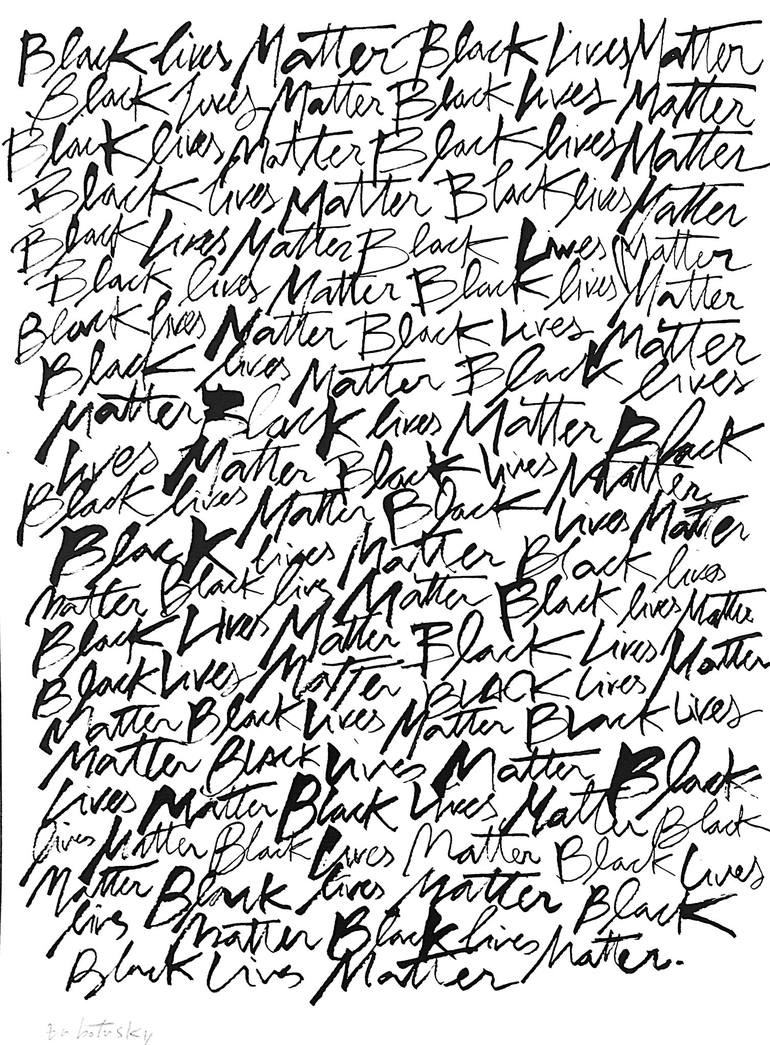 Black lives Matter Black Lives Matter
Black lives Matter Black lives Matter
Black lives Matter Black lives Matter
Black lives Matter Black lives Matter
Black Lives Matter Black Lives Matter
Black lives Matter Black lives Matter
Black lives Matter Black Lives Matter
Black lives Matter Black lives
Matter Black lives Matter Black
Lives Matter Black lives Matter
Black lives Matter Black lives Matter
Black lives Matter Black lives
Matter Black live Matter Black lives Matter
Black Lives Matter Black Lives Matter
Black Lives Matter BLACK lives Matter
Matter Black Lives Matter Black Lives
Matter BLACK lives Matter Black
Lives Matter Black Lives Matter Black
lives Matter Black Lives Matter Black Lives
Matter Black lives Matter Black
lives Matter Black lives Matter.
Black Lives Matter